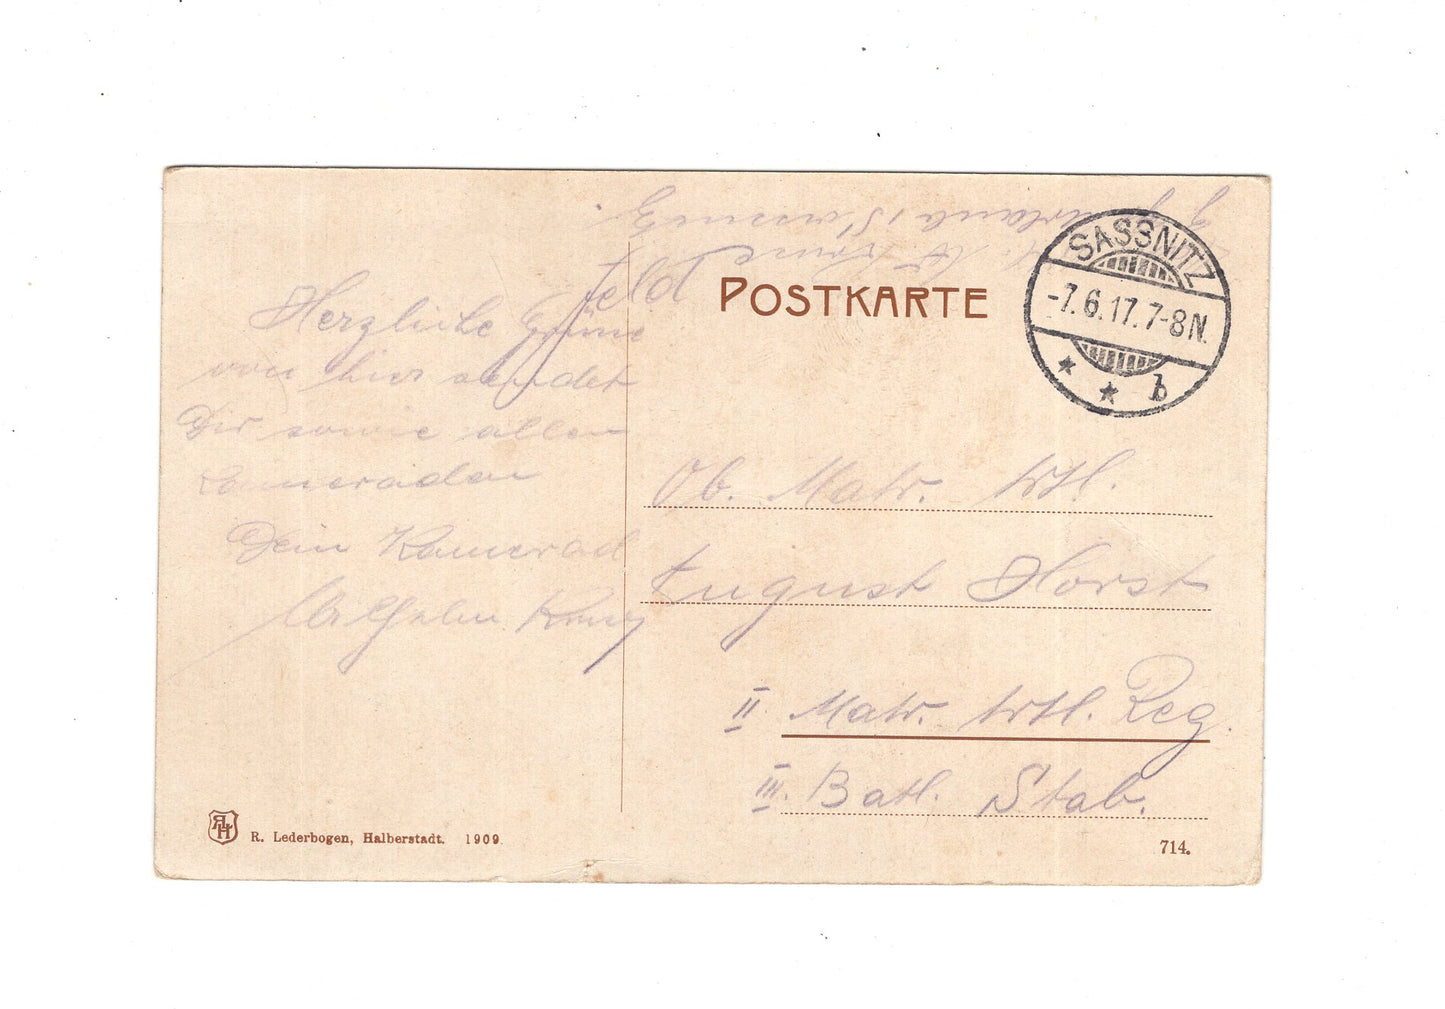 Feld
POSTKARTE
SASSNITZ
-7.6.17.7-8N.
* * b
Herzliche Grüße
von hier sendet
Dir sowie allen
Kameraden
Dein Kamerad
Wilhelm
Ob. Matr. Artl.
August Horst
II. Matr. Artl. Reg.
III. Batl. Stab.
R. Lederbogen, Halberstadt. 1909.
714.